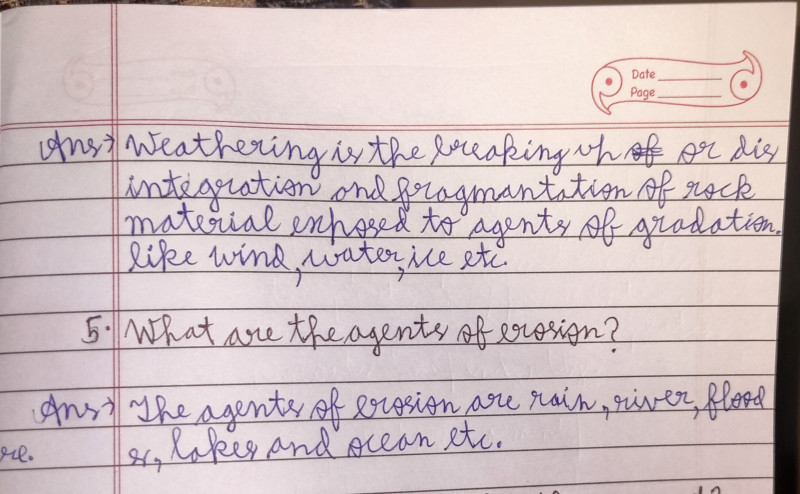 Date
Page
Ans→ Weathering is the breaking up of or dis
integration and fragmantation of rock
material exposed to agents of gradation.
like wind, water, ice etc.
5. What are the agents of erosion?
Ans→ The agents of erosion are rain, river, flood
re. s, lakes and ocean etc.